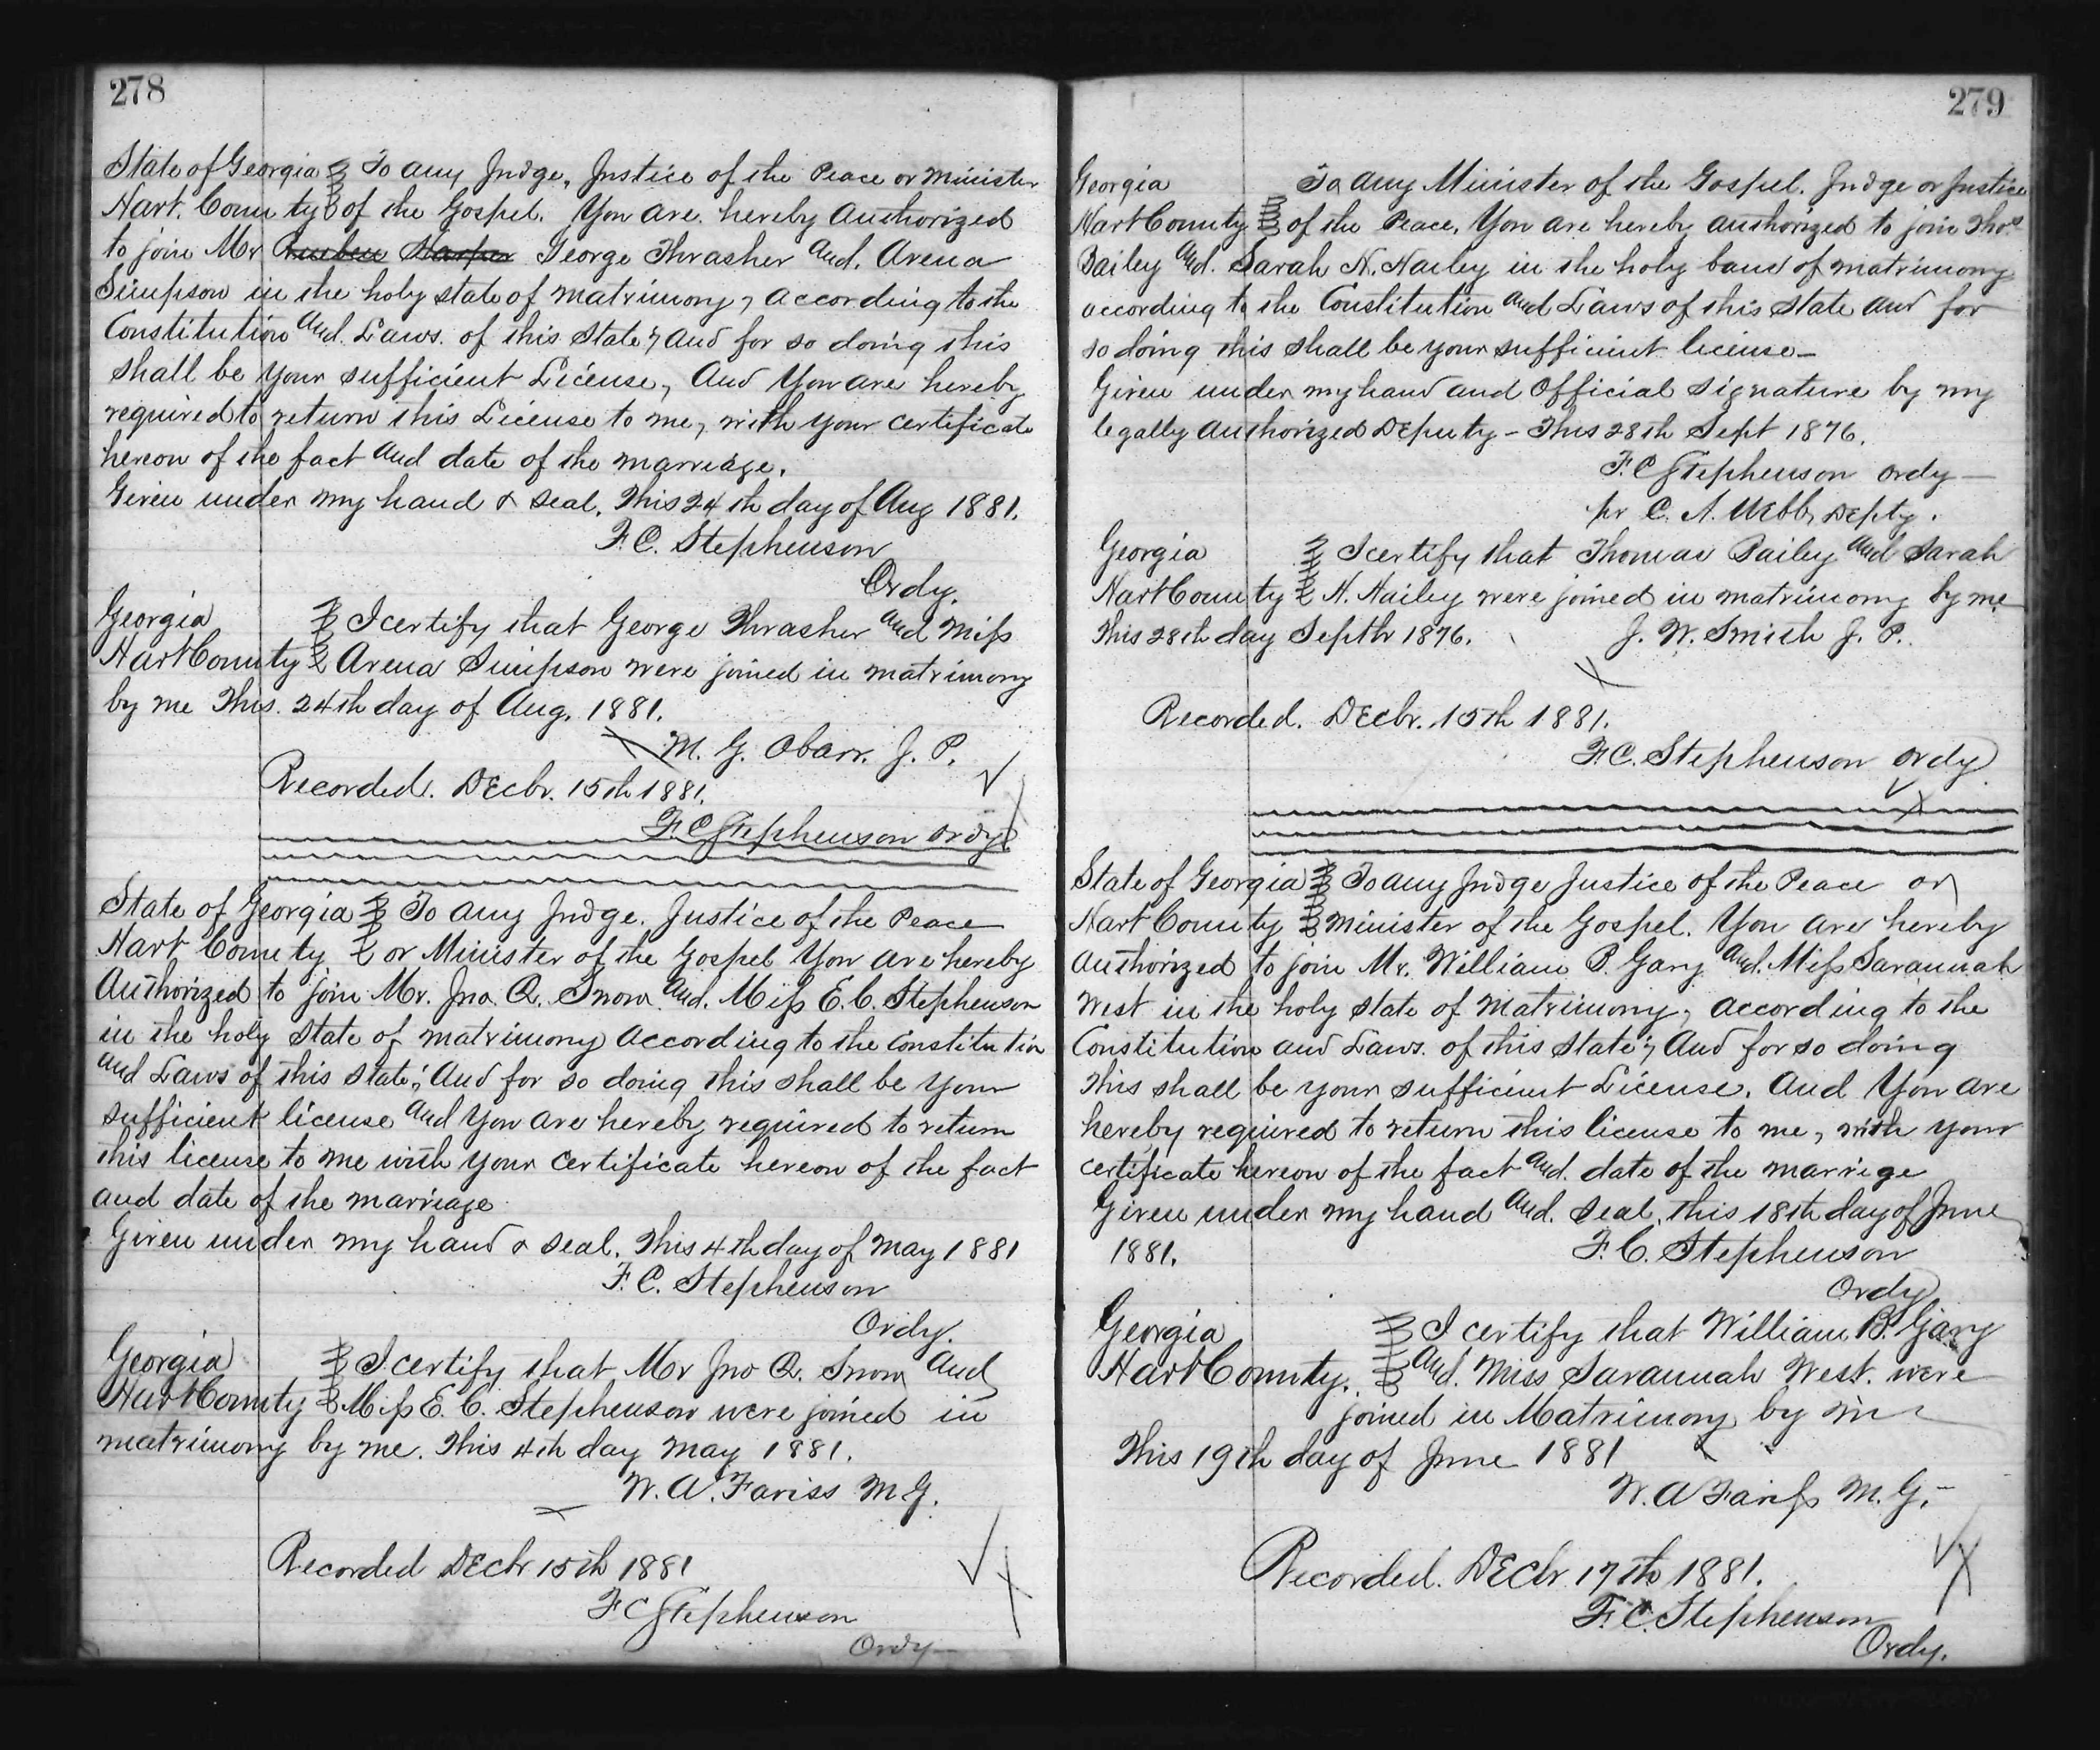 278
State of Georgia To any Judge, Justice of the Peace or Minister
Hart County of the Gospel. You are hereby Authorized
to join Mr Reuben Harper George Thrasher and. Arena
Simpson in the holy state of matrimony, according to the
Constitution and. Laws. of this State; and for so doing this
shall be your sufficient License, And You are hereby
required to return this License to me, with your certificate
hereon of the fact and date of the marriage.
Given under my hand & seal, This 24th day of Aug 1881.
F. C. Stephenson
Ordy.
Georgia I certify that George Thrasher and Miss
Hart County Arena Simpson were joined in matrimony
by me This. 24th day of Aug. 1881.
M. G. Obarr. J. P.
Recorded. Decbr. 15th 1881.
F. C Stephenson ordy
State of Georgia To any Judge. Justice of the Peace
Hart County or Minister of the Gospel You are hereby
Authorized to join Mr. Jno. Q. Snow and. Miss E. C. Stephenson
in the holy state of matrimony according to the Constitution
and Laws of this state; And for so doing this shall be your
sufficient license and You are hereby required to return
this license to me with your certificate hereon of the fact
and date of the marriage
Given under my hand & seal. This 4th day of May 1881
F. C. Stephenson
Ordy.
Georgia I certify that Mr Jno Q. Snow and
Hart County Miss E. C. Stephenson were joined in
matrimony by me. This 4th day May 1881.
W. A. Fariss M.G.
Recorded Decbr 15th 1881
F C Stephenson
Ordy
279
Georgia To any Minister of the Gospel. Judge or Justice
Hart County of the Peace, You are hereby authorized to join Thos
Bailey and. Sarah N. Hailey in the holy band of matrimony
according to the Constitution and Laws of this state and for
so doing this shall be your sufficient license—
Given under my hand and Official signature by my
legally authorized Deputy – This 28th Sept 1876.
F. C Stephenson ordy—
pr C. A. Webb, Depty.
Georgia I certify that Thomas Bailey and Sarah
Hart County N. Hailey were joined in matrimony by me
This 28th day Septbr 1876. J. W. Smith J. P.
Recorded. Decbr. 15th 1881.
F. C. Stephenson ordy
State of Georgia To any Judge Justice of the Peace or
Hart County Minister of the Gospel. You are hereby
authorized to join Mr. William P. Gary and. Miss Savannah
West in the holy state of Matrimony, according to the
Constitution and Laws. of this state; And for so doing
this shall be your sufficient License. And You are
hereby required to return this license to me, with your
certificate hereon of the fact and. date of the marrige
Given under my hand and. seal, this 18th day of June
1881. F. C. Stephenson
Ordy
Georgia I certify that William P. Gary
Hart County. and. Miss Savannah West. were
joined in Matrimony by me
This 19th day of June 1881
W. A Fariss M. G.
Recorded. Decbr 17th 1881.
F. C. Stephenson
Ordy.